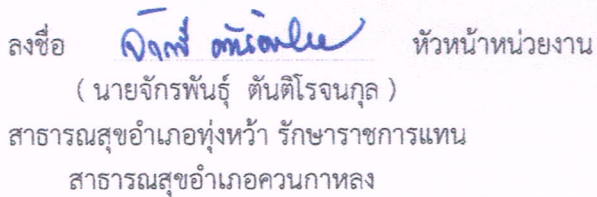 ลงชื่อ หัวหน้าหน่วยงาน
( นายจักรพันธุ์ ตันติโรจนกุล )
สาธารณสุขอำเภอทุ่งหว้า รักษาราชการแทน
สาธารณสุขอำเภอควนกาหลง